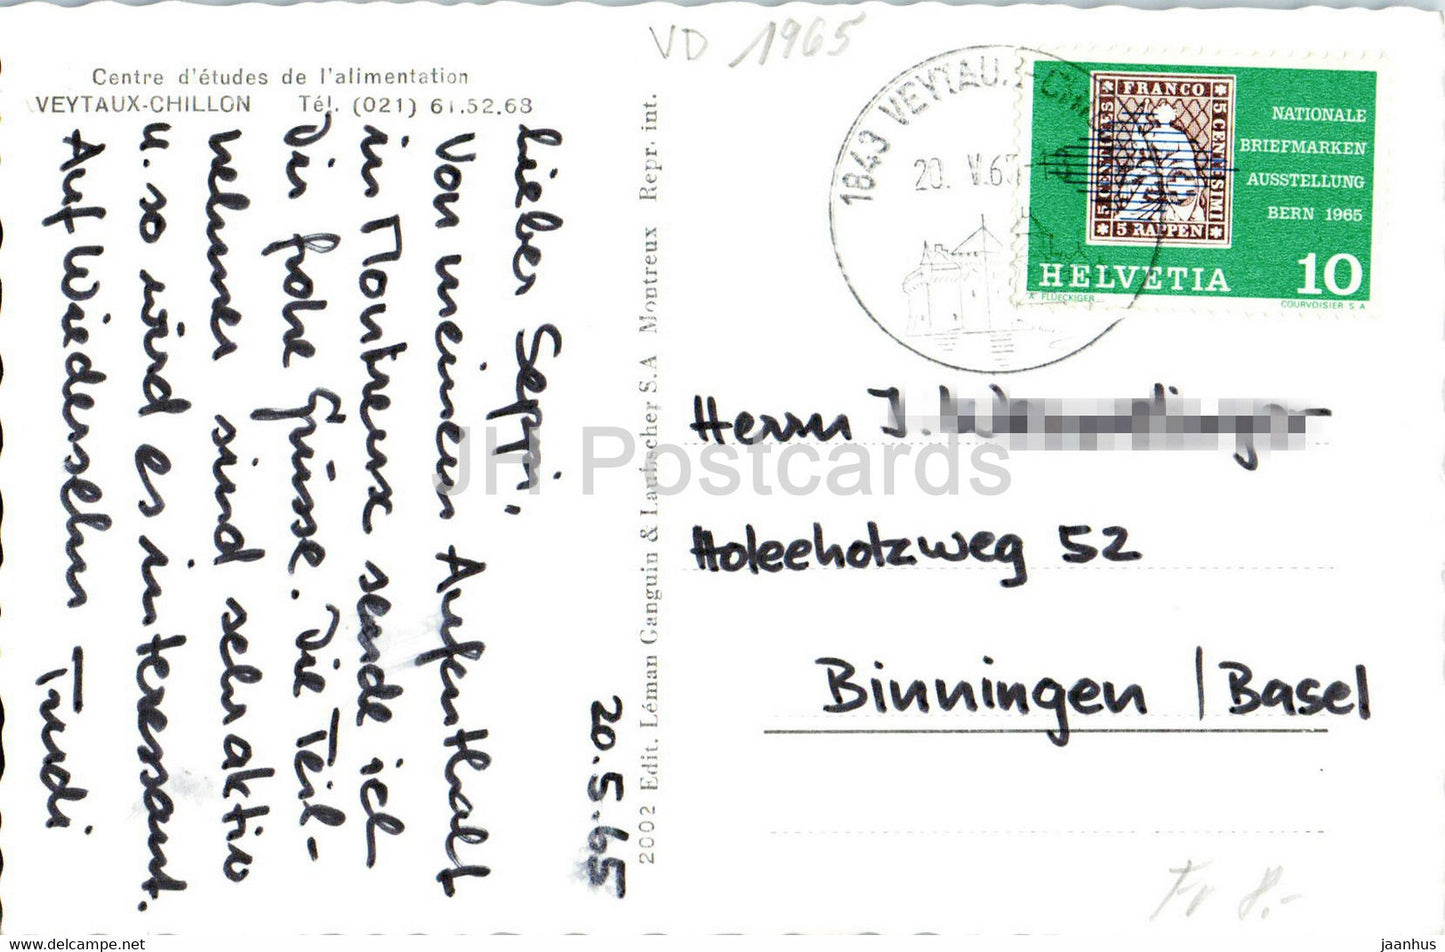 VD 1965
Centre d'études de l'alimentation
VEYTAUX-CHILLON Tél. (021) 61.52.68
20.5.65
Lieber Seppi,
Von meinem Aufenthalt
in Montreux sende ich
Dir frohe Grüsse. Die Teil-
nehmer sind sehr aktiv
u. so wird es interessant.
Auf Wiedersehn Trudi
2002 Edit. Léman Ganguin & Laubscher S.A Montreux Repr. int.
1843 VEYTAUX-
20. V.65
FRANCO
5 CENTIMES
5 CENTESIMI
5 RAPPEN
NATIONALE
BRIEFMARKEN
AUSSTELLUNG
BERN 1965
HELVETIA 10
FLÜCKIGER
COURVOISIER S A
Herrn J.
Holeeholzweg 52
Binningen / Basel
Fr 8.-
JH Postcards
delcampe.net
jaanhus